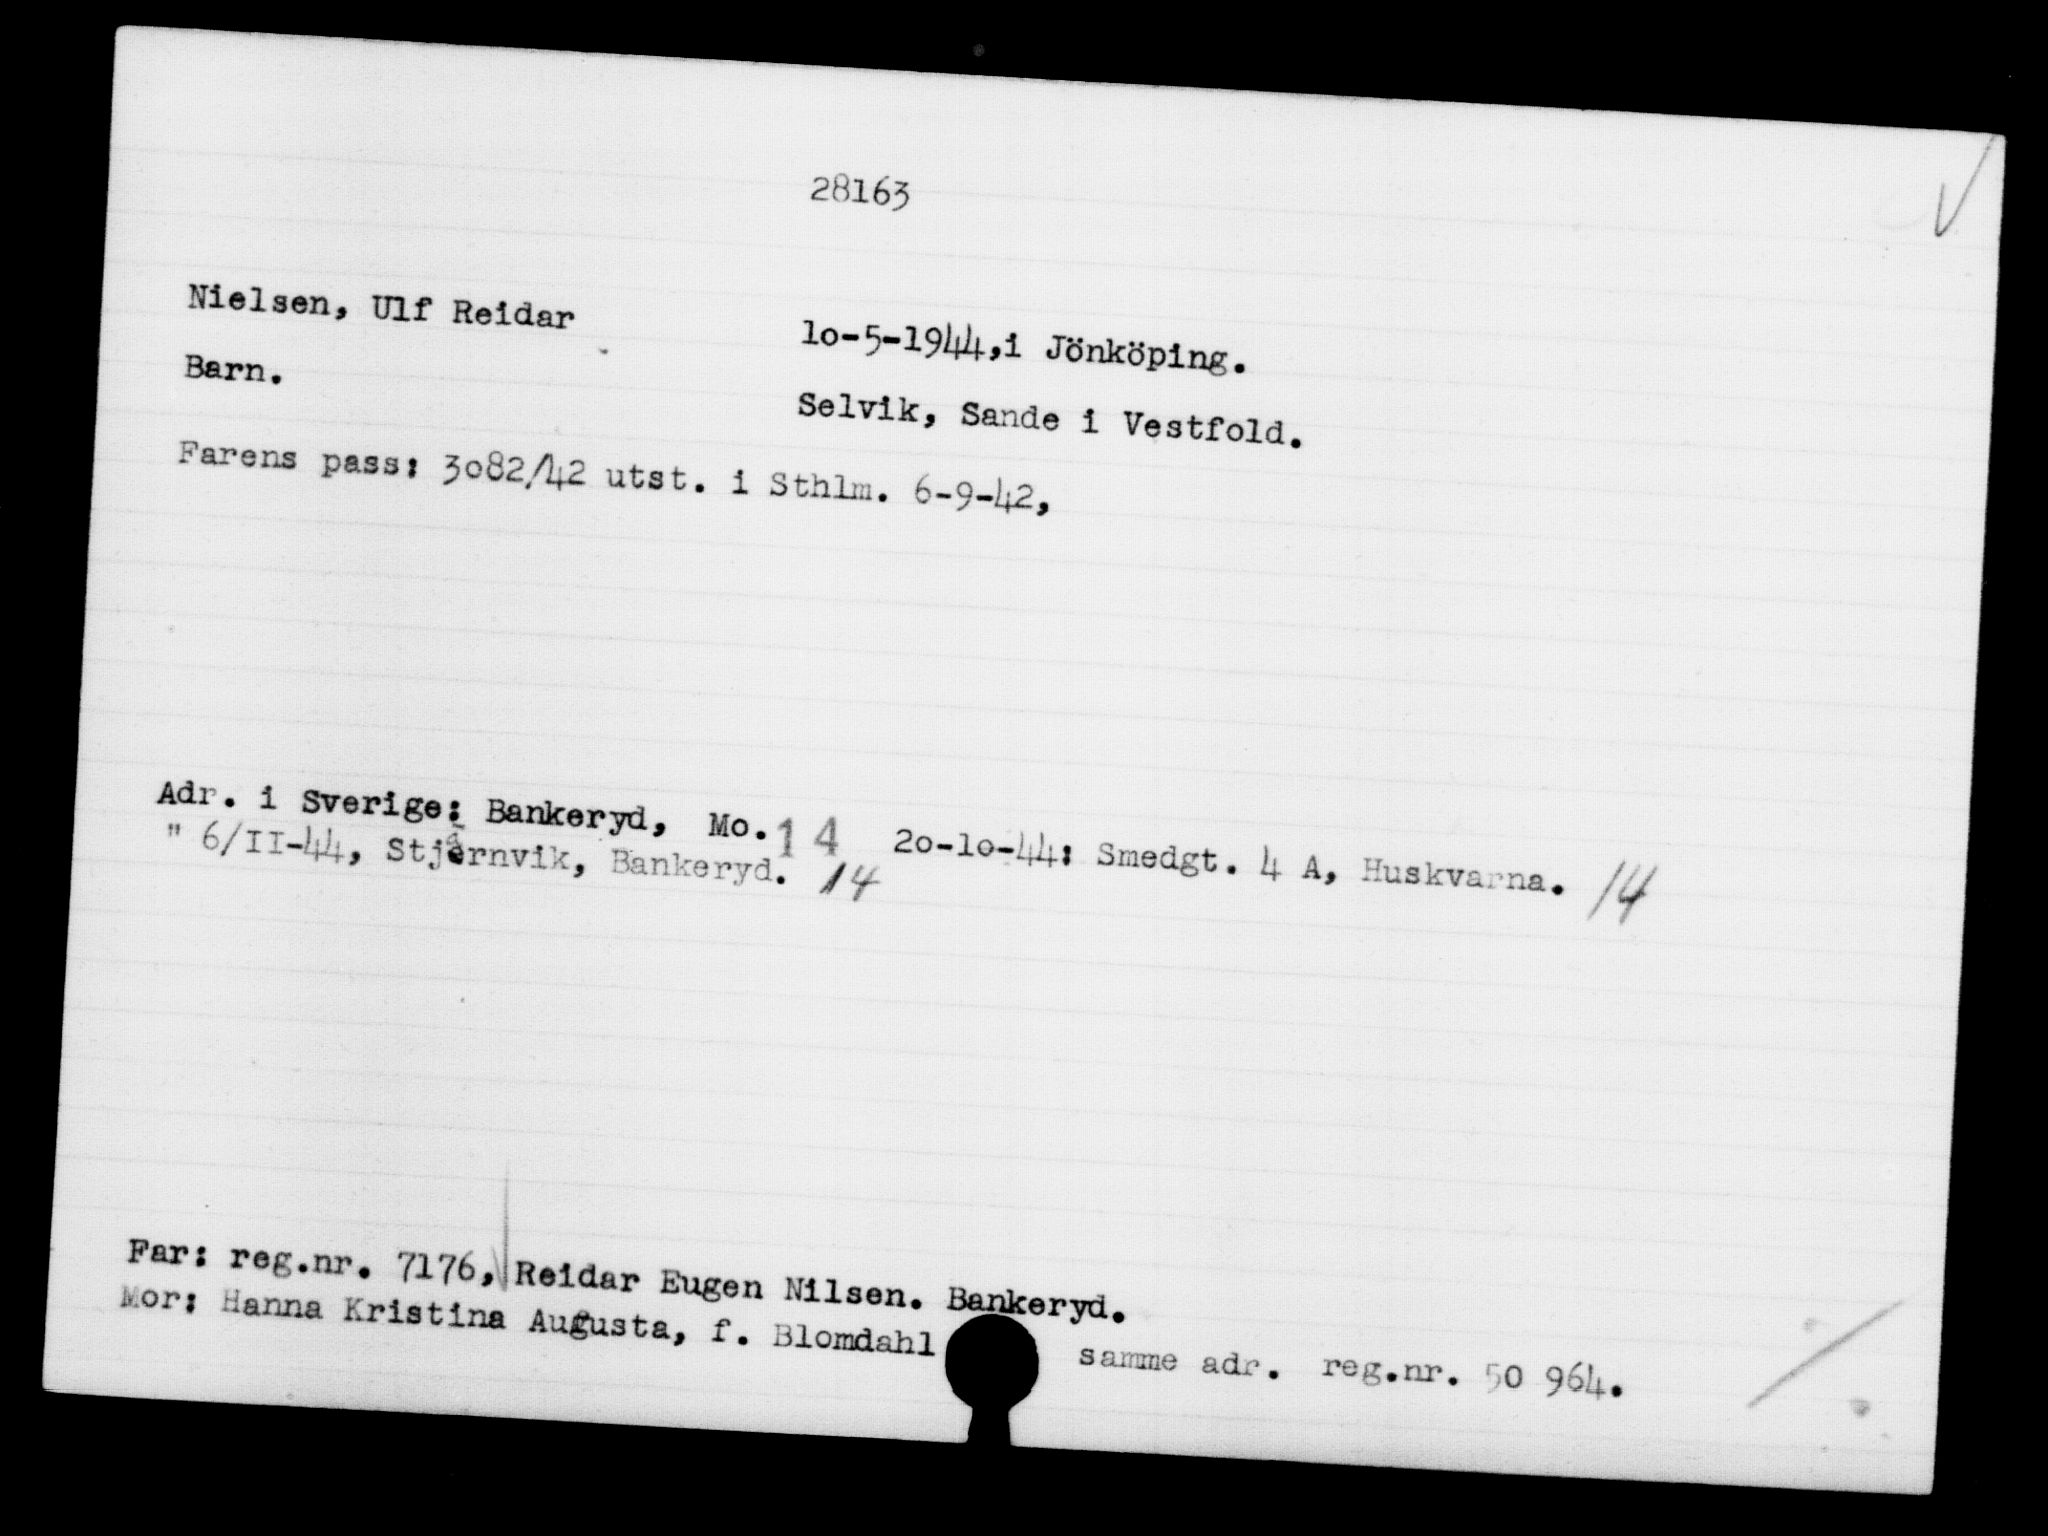 28163
V
Nielsen, Ulf Reidar
lo-5-1944,i Jönköping.
Barn.
Selvik, Sande i Vestfold.
Farens pass: 3o82/42 utst. i Sthlm. 6-9-42,
Adr. i Sverige: Bankeryd, Mo. 14 2o-lo-44: Smedgt. 4 A, Huskvarna. 14
" 6/II-44, Stjärnvik, Bankeryd. 14
Far: reg.nr. 7176, Reidar Eugen Nilsen. Bankeryd.
Mor: Hanna Kristina Augusta, f. Blomdahl samme adr. reg.nr. 50 964.